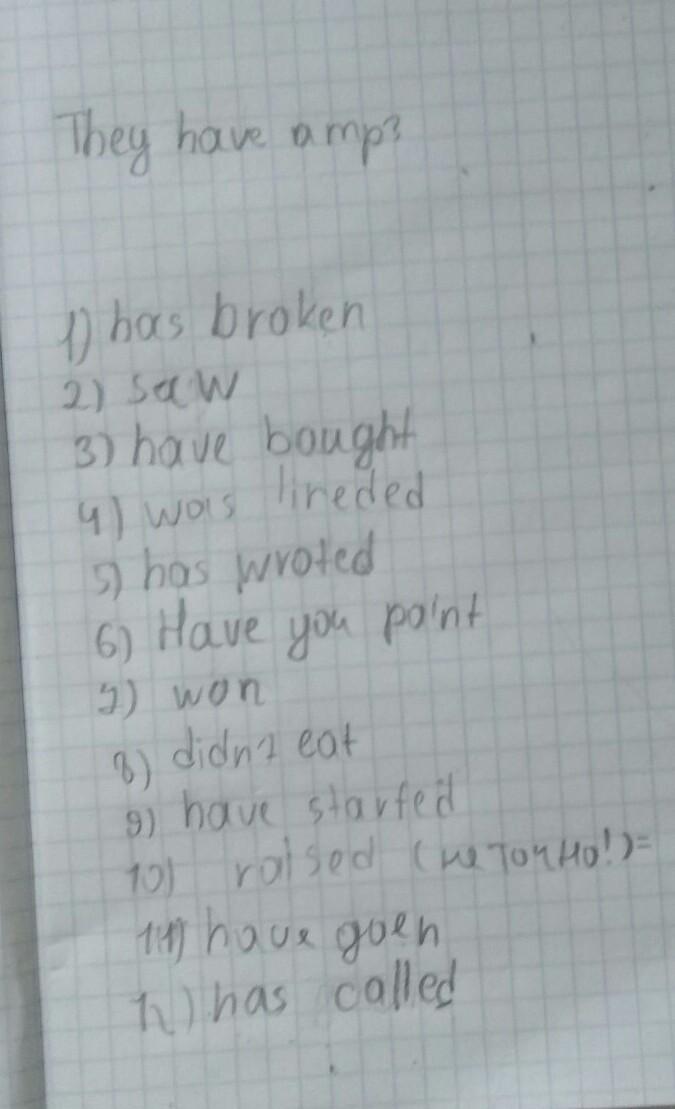 They have a mp3
1) has broken
2) saw
3) have bought
4) was lireded
5) has wroted
6) Have you paint
7) won
8) didn't eat
9) have started
10) raised (не точно!)=
11) have goen
12) has called